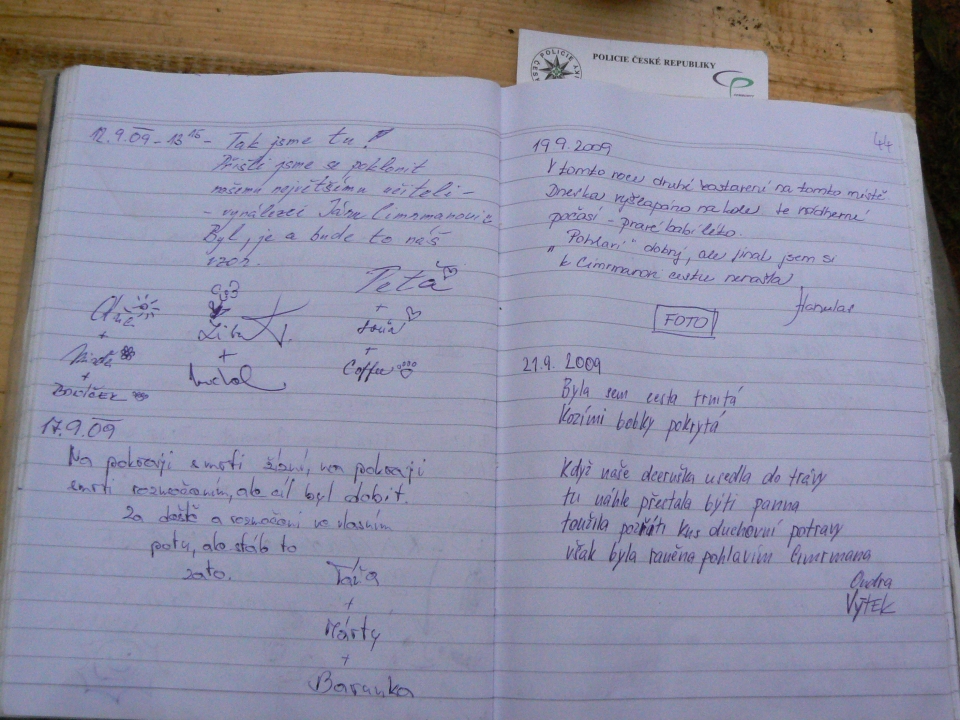 POLICIE ČESKÉ REPUBLIKY
12.9.09 - 13 15 - Tak jsme tu!
Přišli jsme se poklonit
našemu největšímu učiteli -
- vynálezci Járu Cimrmanovi
Byl, je a bude to náš
vzor.
Peťa
+
+
+
Coffee
+
17.9.09
Na pokraji smrti žízní, na pokraji
smrti rozmočením, ale cíl byl dobit.
Za deště a rozmočení ve vlasním
potu, ale stáb to
zato.
Táňa
+
Márty
+
Baranka
44
19.9.2009
V tomto roce druhé zastavení na tomto místě
Dneska vyšlapáno na kole. Je nádherné
počasí - pravé babí léto.
"Pohlaví" dobrý, ale jinak jsem si
k Cimrmanovi cestu nenašla
Hanulas
FOTO
21.9.2009
Byla sem cesta trnitá
Kozími bobky pokrytá
Když naše dceruška usedla do trávy
tu náhle přestala býti panna
toužila pozříti kus duchovní potravy
však byla raněna pohlavím Cimrmana
Ondra
VÝTEK